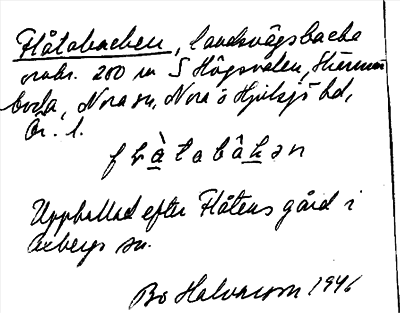 Flåtabacken, landsvägsbacke
omkr. 200 m S Högsvalen,
boda, Nora sn, Nora o Hjulsjö bd,
Ör. l.
f l à t a b â k ə n
Uppkallad efter Flåtens gård i
Axbergs sn.
Bo Halvarson 1946